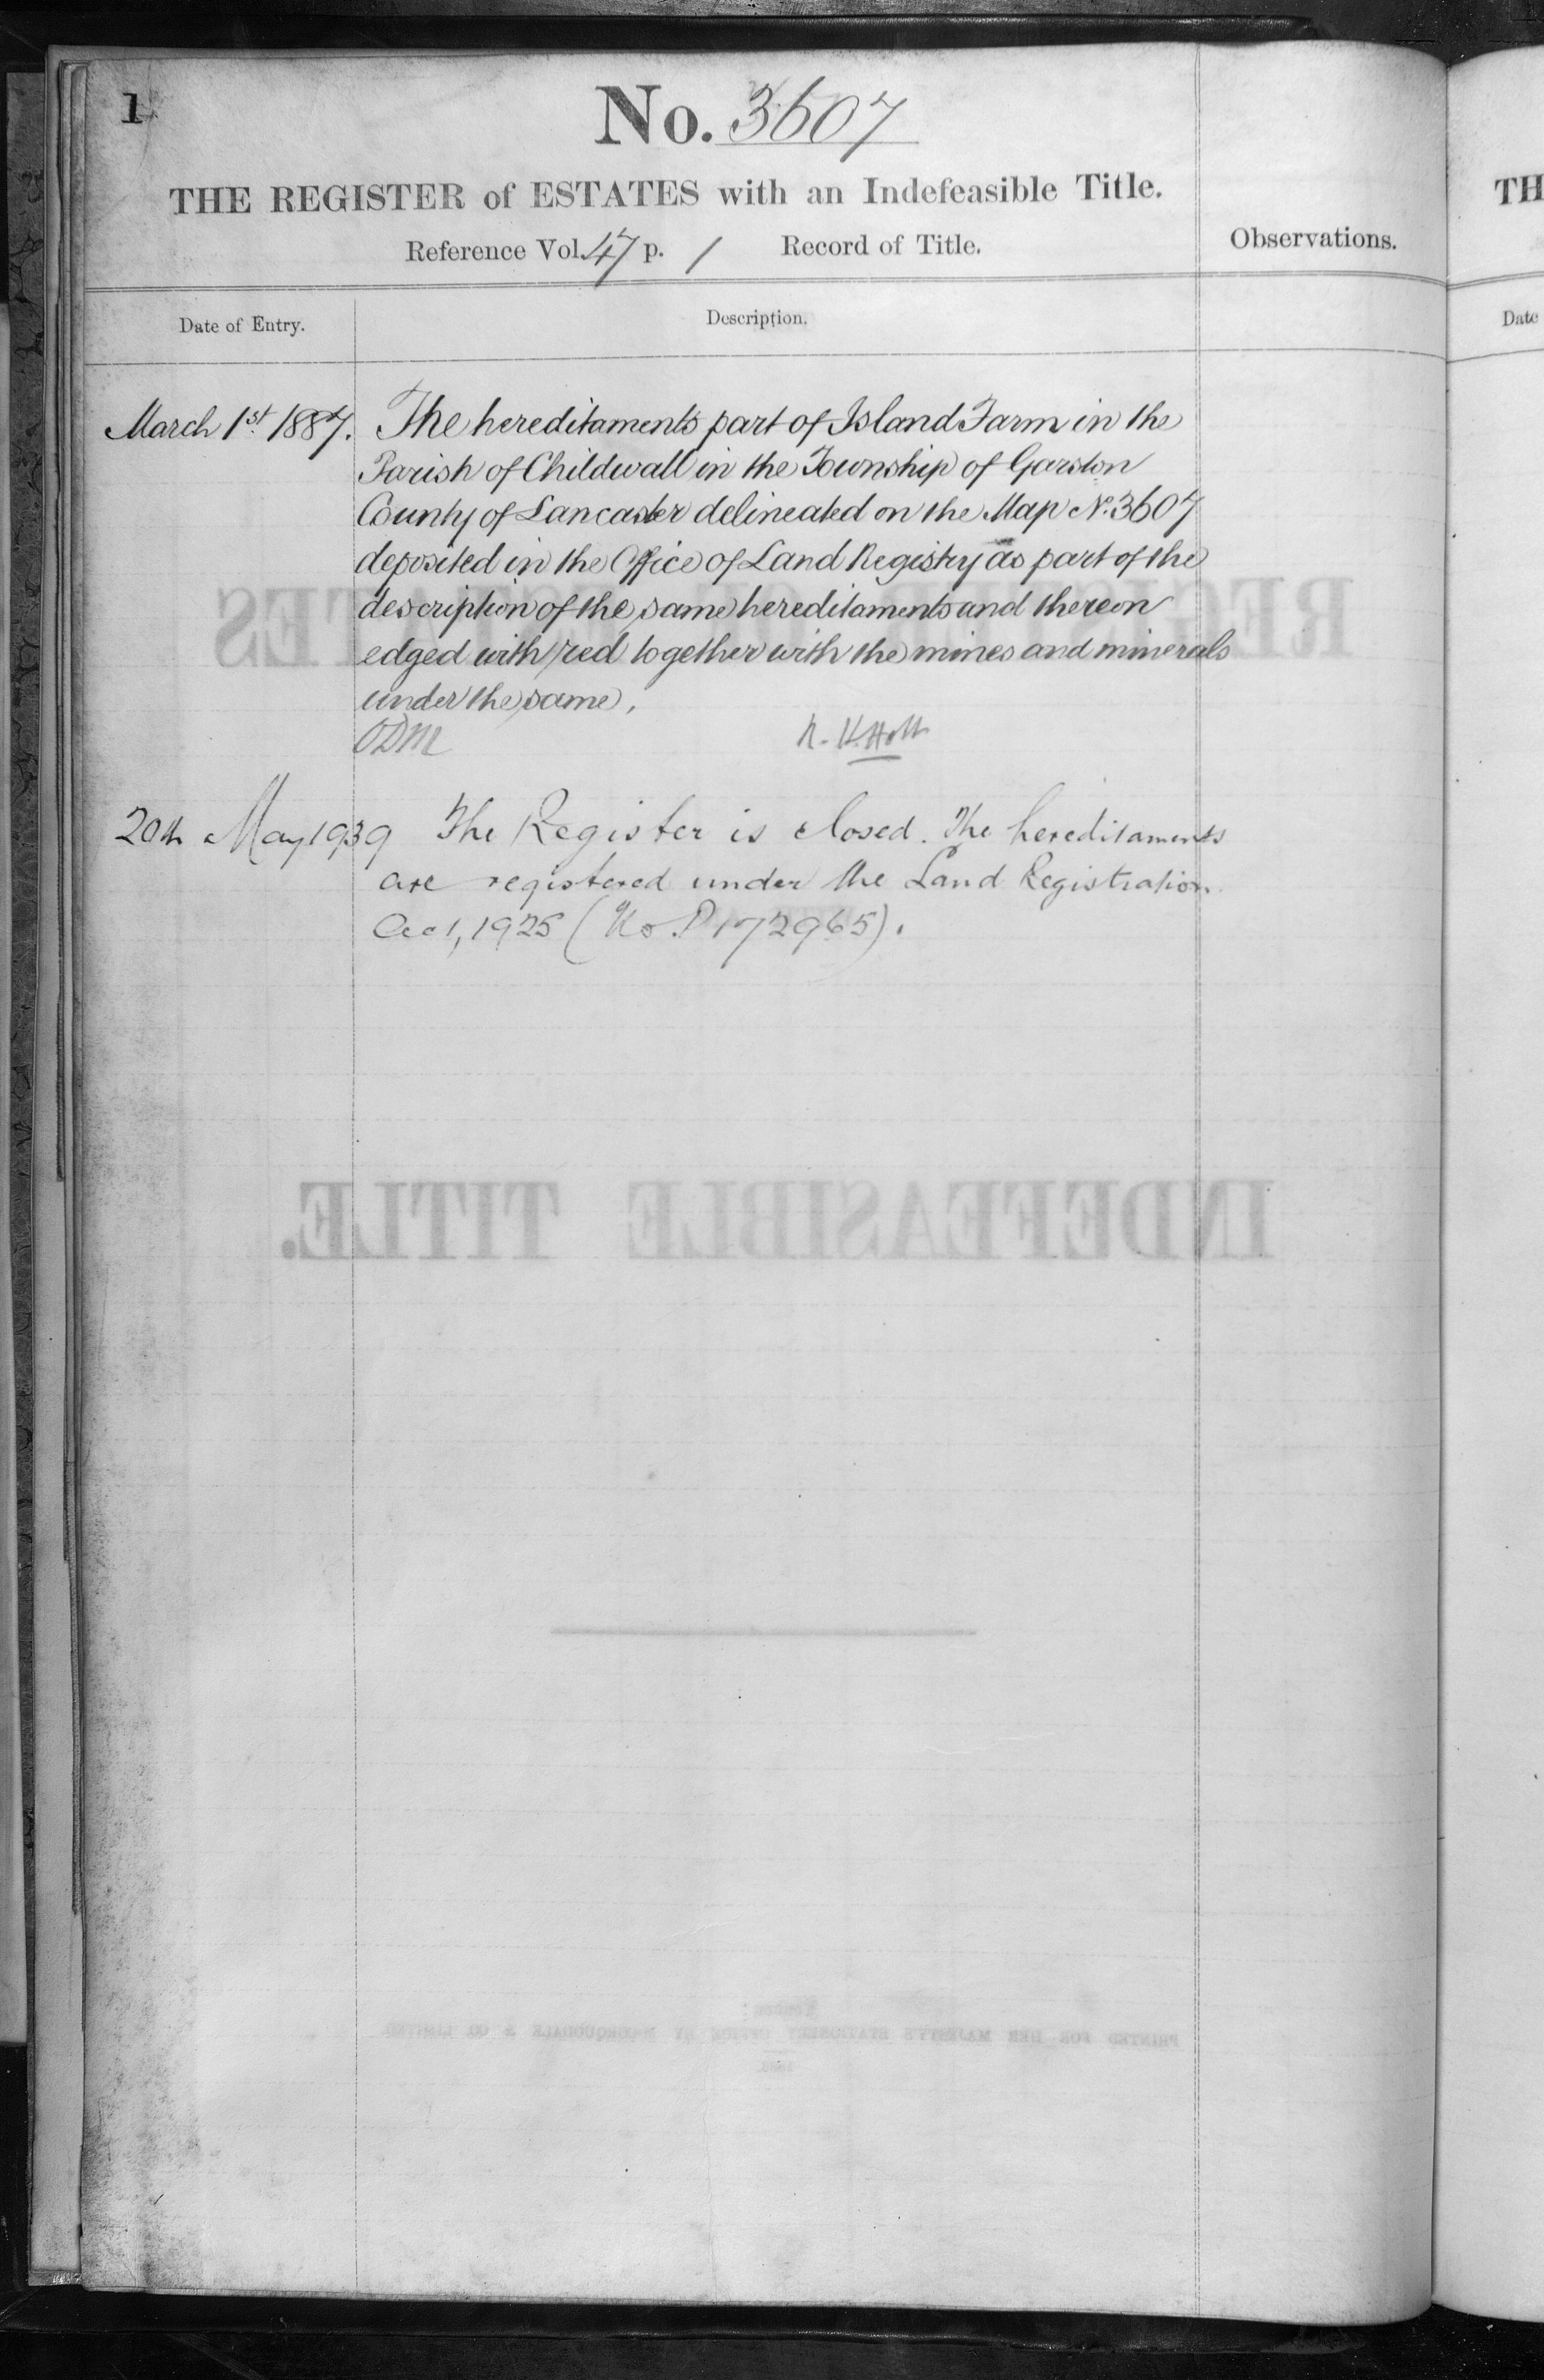 1
No. 3607
THE REGISTER of ESTATES with an Indefeasible Title.
Reference Vol. 47 p. 1 Record of Title.
Observations.
Date of Entry.
Description.
March 1st 1887. The hereditaments part of Island Farm in the
Parish of Childwall in the Township of Garston
County of Lancaster delineated on the Map No. 3607
deposited in the Office of Land Registry as part of the
description of the same hereditaments and thereon
edged with red together with the mines and minerals
under the same.
ODM R. H. Holt
20th May 1939 The Register is closed. The hereditaments
are registered under the Land Registration
Act, 1925 (No. P172965).
REGISTER OF ESTATES
INDEFEASIBLE TITLE.
PRINTED FOR HER MAJESTY'S STATIONERY OFFICE BY McCORQUODALE & CO LIMITED
TH
Date